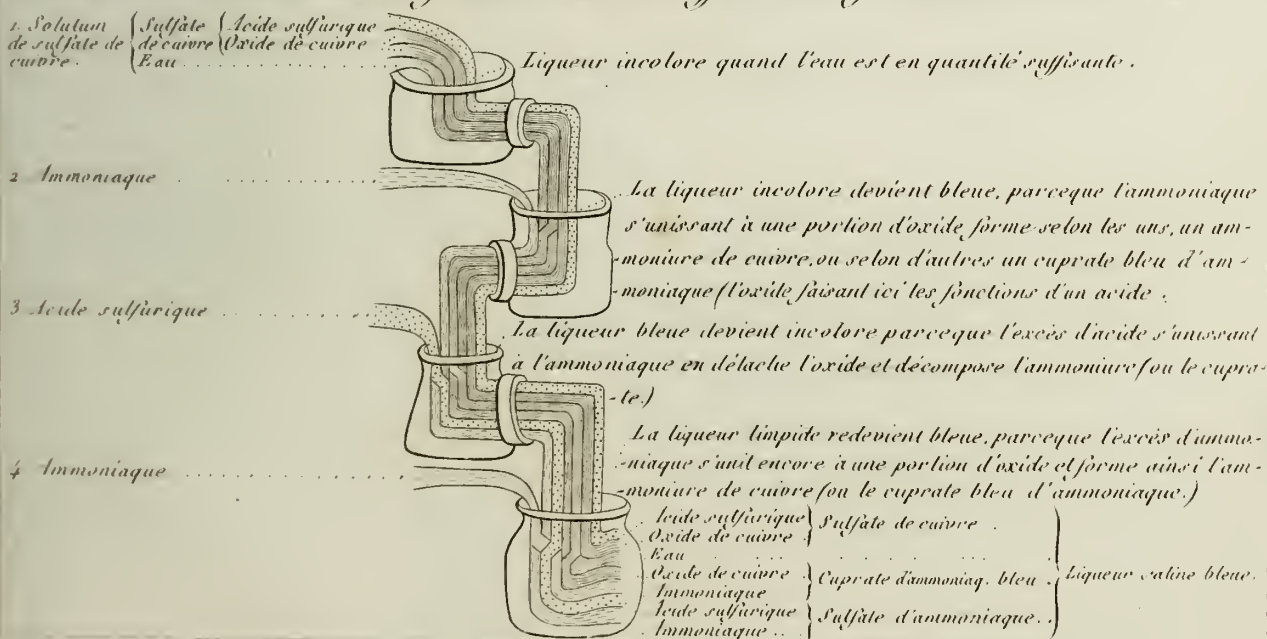 1. Solutum { Sulfate { Acide sulfurique
de sulfate de { de cuivre { Oxide de cuivre
cuivre . { Eau . . . . . . . . . . . . .
Liqueur incolore quand l'eau est en quantité suffisante .
2 Ammoniaque . . . . . . . . . .
La liqueur incolore devient bleue, parceque l'ammoniaque
s'unissant à une portion d'oxide, forme selon les uns, un am-
-moniure de cuivre, ou selon d'autres un cuprate bleu d'am-
-moniaque (l'oxide faisant ici les fonctions d'un acide .
3 Acide sulfurique . . . . . . . . . .
La liqueur bleue devient incolore parceque l'excès d'acide s'unissant
à l'ammoniaque en détache l'oxide et décompose l'ammoniure (ou le cupra-
-te.)
La liqueur limpide redevient bleue, parceque l'excès d'ammo-
-niaque s'unit encore à une portion d'oxide et forme ainsi l'am-
-moniure de cuivre (ou le cuprate bleu d'ammoniaque.)
4 Ammoniaque . . . . . . . . . . . . . . . .
Acide sulfurique } Sulfate de cuivre .
Oxide de cuivre
Eau . . . . . . . . . . .
Oxide de cuivre } Cuprate d'ammoniaq. bleu . } Liqueur saline bleue.
Ammoniaque
Acide sulfurique } Sulfate d'ammoniaque . .
Ammoniaque . .